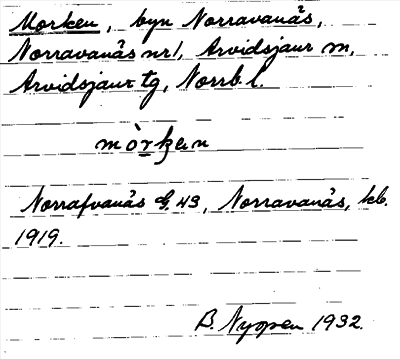 Morken, byn Norravanås,
Norravanås nr 1, Arvidsjaur m,
Arvidsjaur tg, Norrb. l.
mòrkæn
Norrafvanås G. 43, Norravanås, kb.
1919.
B. Nyman 1932.